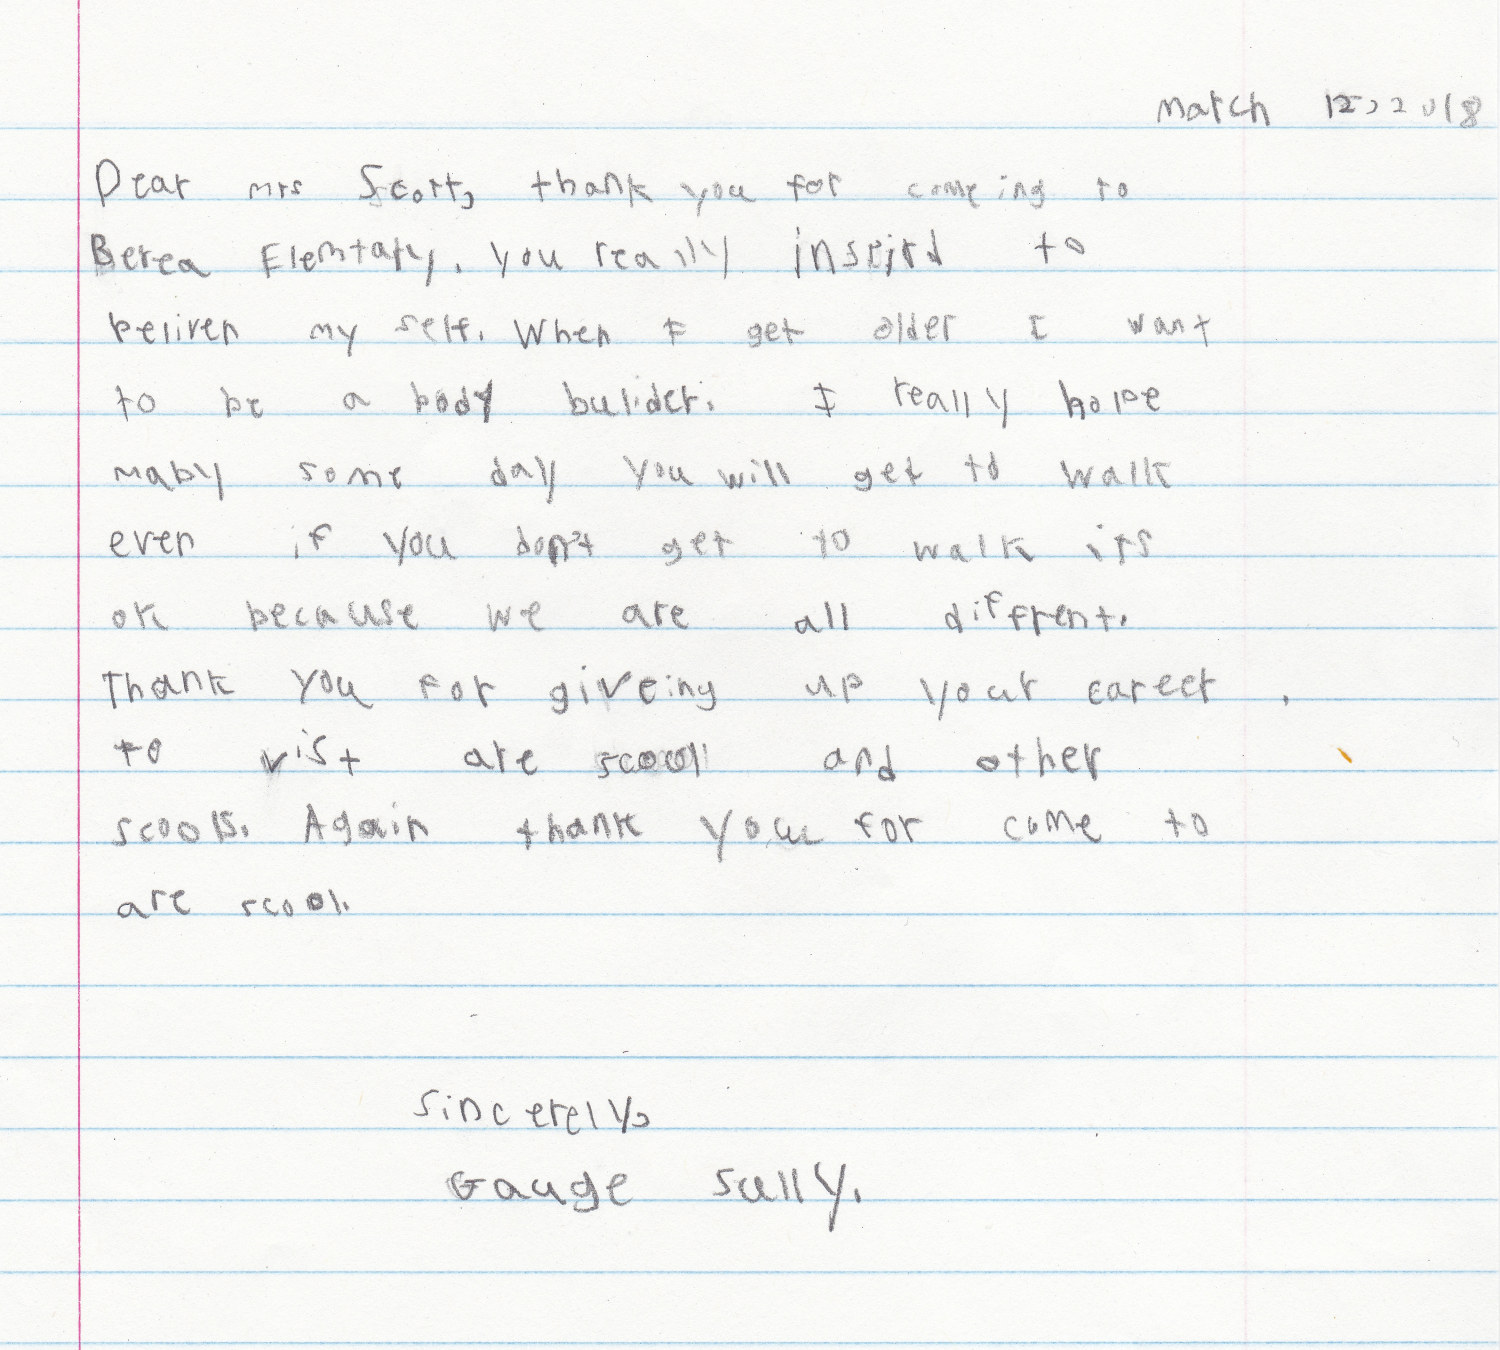 march 12, 2018
Dear mrs Scott, thank you for comeing to
Berea Elemtary. you really inspird to
beliven my self. When I get older I want
to be a body bulider. I really hope
maby some day you will get to walk
even if you don't get to walk its
ok because we are all diffrent.
Thank you for giveing up your career .
to vist are scooll and other
scools. Again thank you for come to
are scool.
Sincerely,
Gauge Sully.